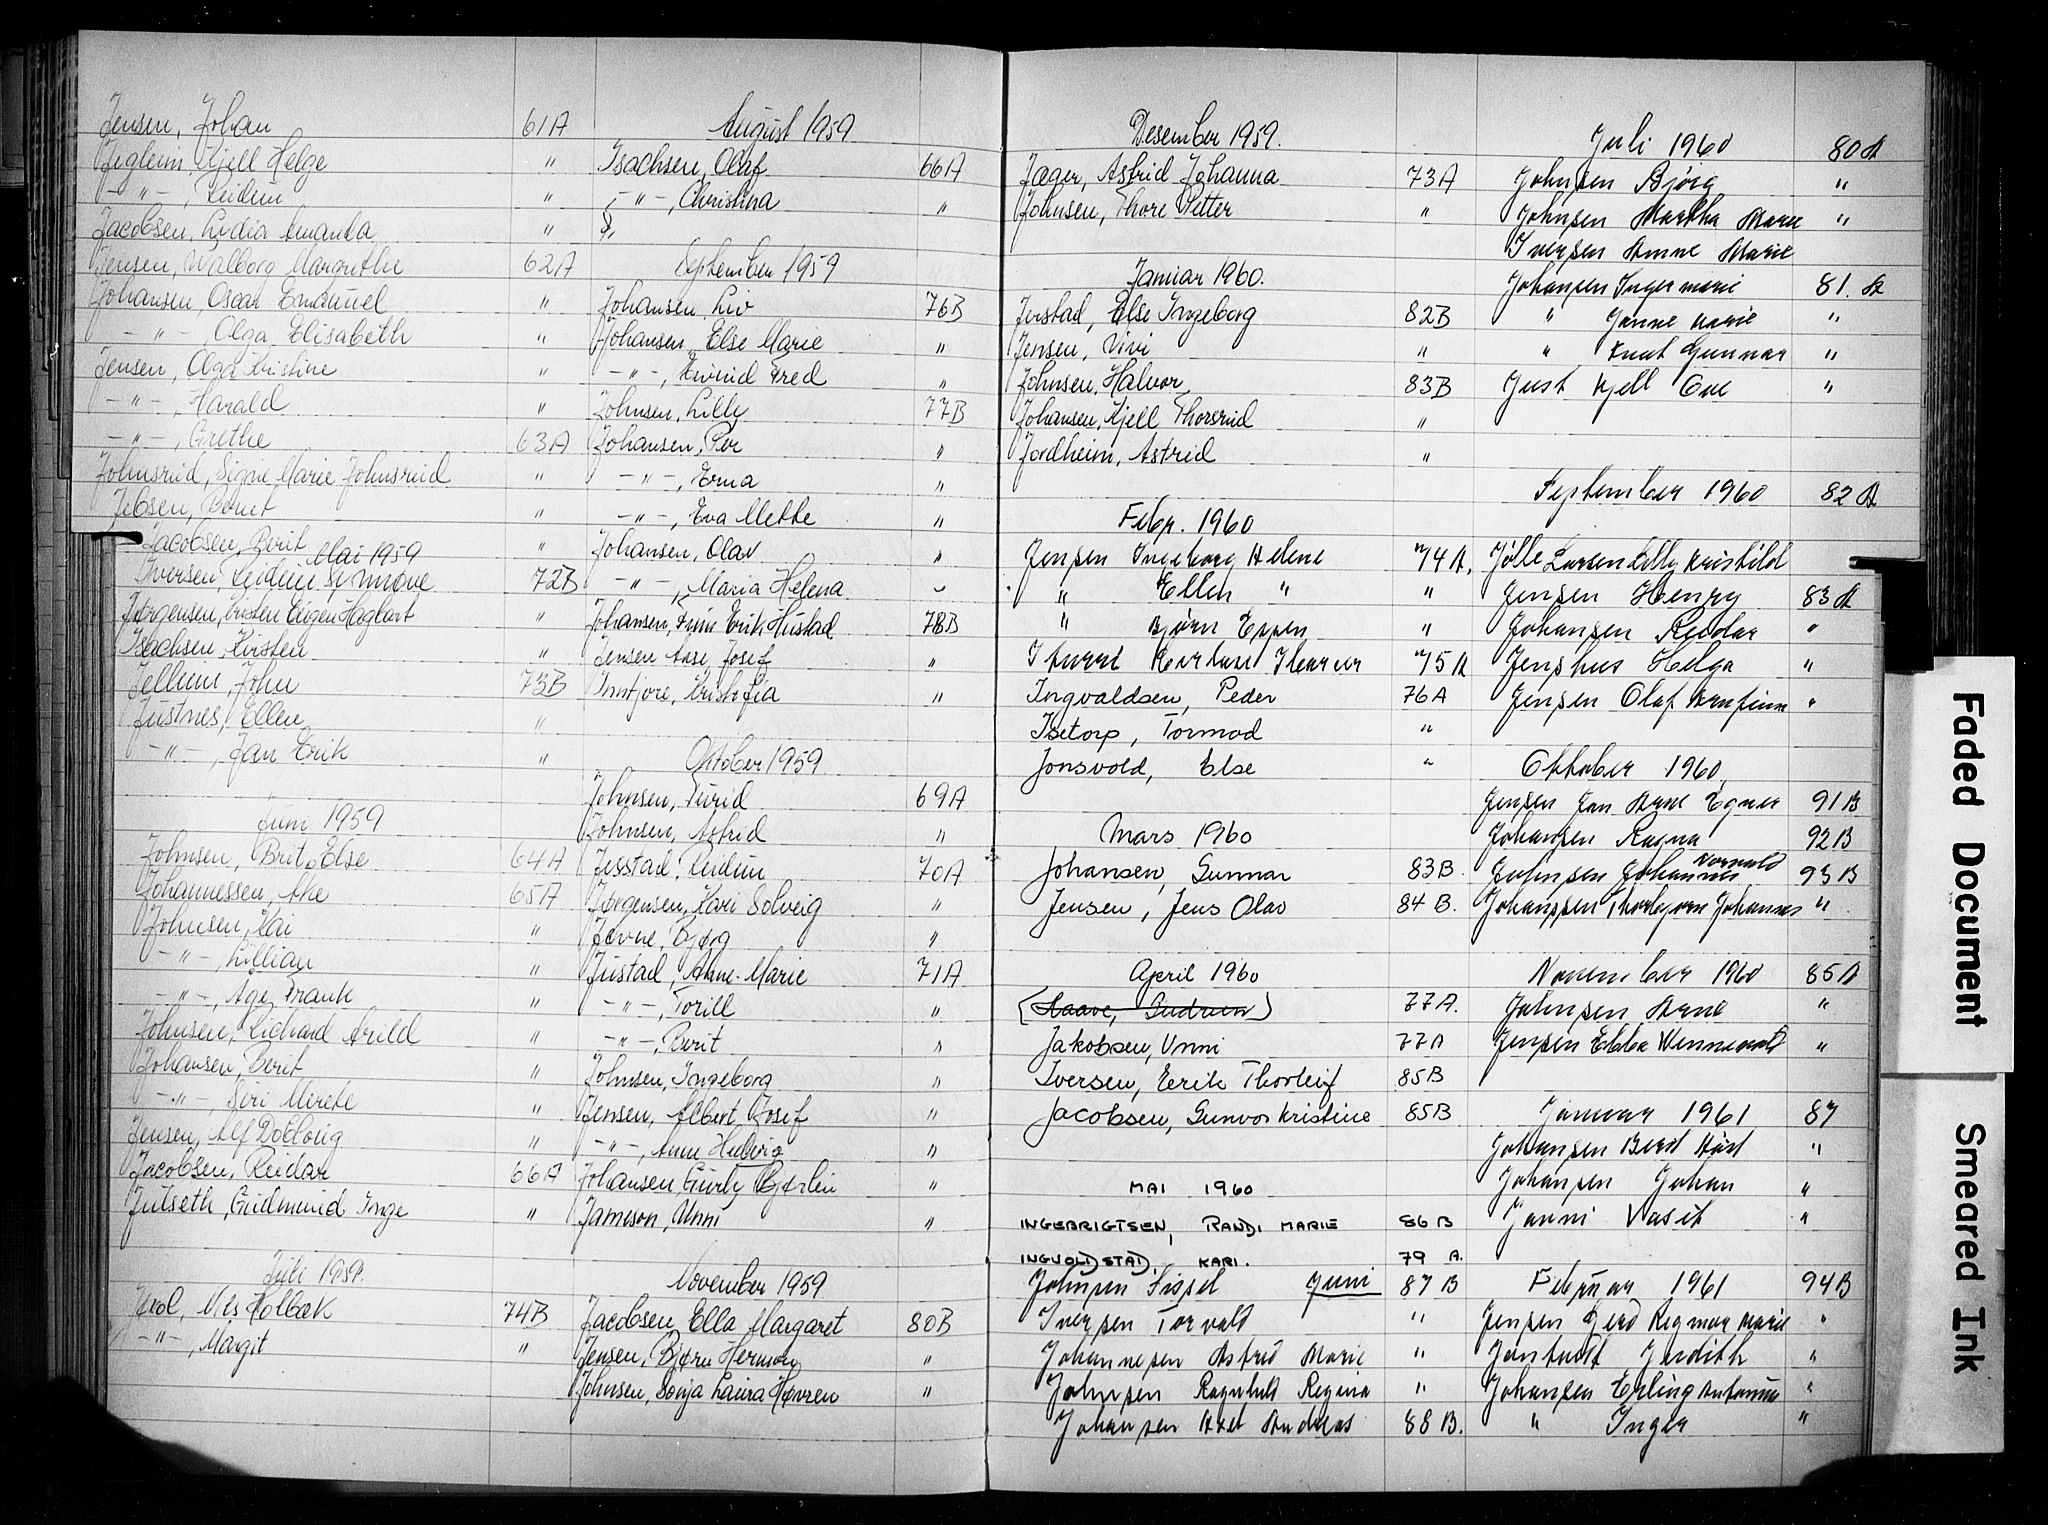 Jensen, Johan 61A
Jegleim, Kjell Helge "
-"-, Reidun "
Jacobsen, Lydia Amanda "
Jensen, Walborg Margrethe 62A
Johansen, Oscar Emanuel "
-"-, Olga Elisabeth "
Jensen, Olga Kristine "
-"-, Harald "
-"-, Grethe 63A
Johnsrud, Signe Marie Johnsrud "
Jebsen, Bernt "
Jacobsen, Berit "
Mai 1959
Iversen, Reidun Synnøve 72B
Jørgensen, Eugen Hagbart "
Isachsen, Kirsten "
Jellum, John 73B
Justnes, Ellen "
-"-, Jan Erik "
Juni 1959
Johnsen, Brit Else 64A
Johannessen, Åge 65A
Johnsen, Kai "
-"-, Lillian "
-"-, Åge Frank "
Johnsen, Richard Arild "
Johansen, Berit "
-"-, Siri Merete "
Jensen, Alf "
Jacobsen, Reidar 66A
Julseth, Gudmund Inge "
Juli 1959.
Nils Holbæk 74B
-"-, Margit "
August 1959
Isachsen, Olaf 66A
-"-, Christina "
September 1959
Johansen, Liv 76B
Johansen, Else Marie "
-"-, Eivind Fred "
Johnsen, Lilly 77B
Johansen, Per "
-"-, Erna "
-"-, Eva Mette "
Johansen, Olav "
-"-, Maria Helena "
Johansen, Finn Erik Hustad 78B
Jensen Aase Josef "
Kristofia "
Oktober 1959
Johnsen, Turid 69A
Johnsen, Astrid "
Jesstad, Reidun 70A
Jørgensen, Kari Solveig "
Jevne, Bjørg "
Justad, Anne-Marie 71A
-"-, Torill "
-"-, Berit "
Johnsen, Ingeborg "
Jensen, Albert Josef "
-"-, Anne Hedvig "
Johansen, Gurly "
Jameson, Unni "
November 1959
Jacobsen, Ella Margaret 80B
Jensen, Bjørn Herman "
Johnsen, Sonja Laura Hovren "
Desember 1959.
Jæger, Astrid Johanna 73A
Johnsen, Thore Petter "
Januar 1960.
Jerstad, Else Ingeborg 82B
Jensen, Vivi "
Johnsen, Halvor 83B
Johansen, Kjell Thorsrud "
Jordheim, Astrid "
Febr. 1960
Jensen Ingeborg Helene 74A.
" Ellen " "
" Bjørn Espen "
75A
Ingvaldsen, Peder 76A
Isetorp, Tormod "
Jonsvold, Else "
Mars 1960
Johansen, Gunnar 83B.
Jensen, Jens Olav 84B.
April 1960
(Staave, Gudrun) 77A.
Jakobsen, Unni 77A
Iversen, Eerik Thorleif 85B
Jacobsen, Gunvor Kristine 85B
MAI 1960
INGEBRIGTSEN, RANDI MARIE 86B
INGVOLDSTAD, KARI. 79 A.
Johnsen Sissel Juni 87B
Iversen Torvald "
Johannesen Astrid Marie "
Johnsen Ragnhild Regina "
Johansen Axel Andreas 88B.
Juli 1960 80A
Johnsen Bjørg "
Johnsen Martha Marie "
Iversen Anne Marie
Johansen Inger Marie 81.A
" Janne Marie "
" Knut Gunnar "
Just Kjell Ove "
September 1960 82A
Jølle Larsen Lilly Kristild
Jensen Henry 83A
Johansen Reidar "
Jenshus Helga "
Jensen Olaf Arnfinn "
Oktober 1960
Jensen Jan Arne Egner 91B
Johansen Ragna 92B
Johnsen Johannes 93B
Johanssen Thorbjørn Johannes "
November 1960 85A
Johnsen Arne "
Jensen Ebba "
Januar 1961 87
Johansen Berit "
Johansen Johan "
Janni Vasit "
Februar 1961 94B
Jensen Gerd Regmor Marie "
Judith "
Johansen Erling Antonius "
" Inger "
Faded Document
Smeared Ink